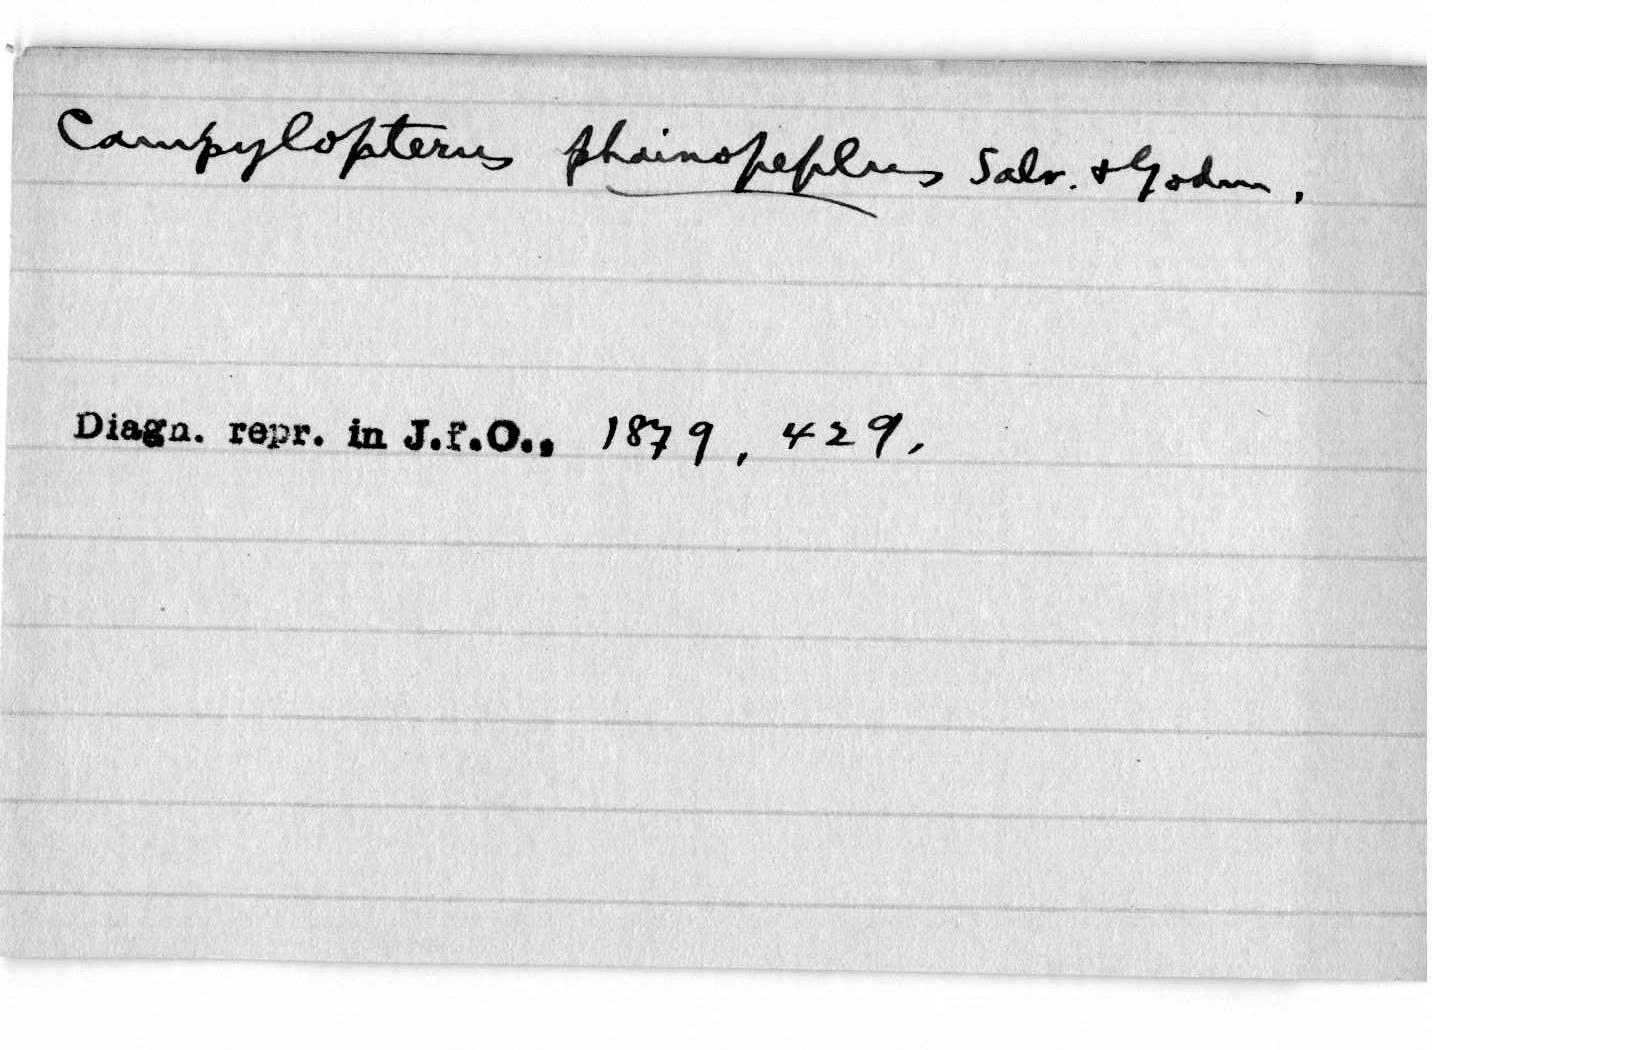 Campylopterus phainopeplus Salv. & Godm.,
Diagn. repr. in J.f.O., 1879, 429,